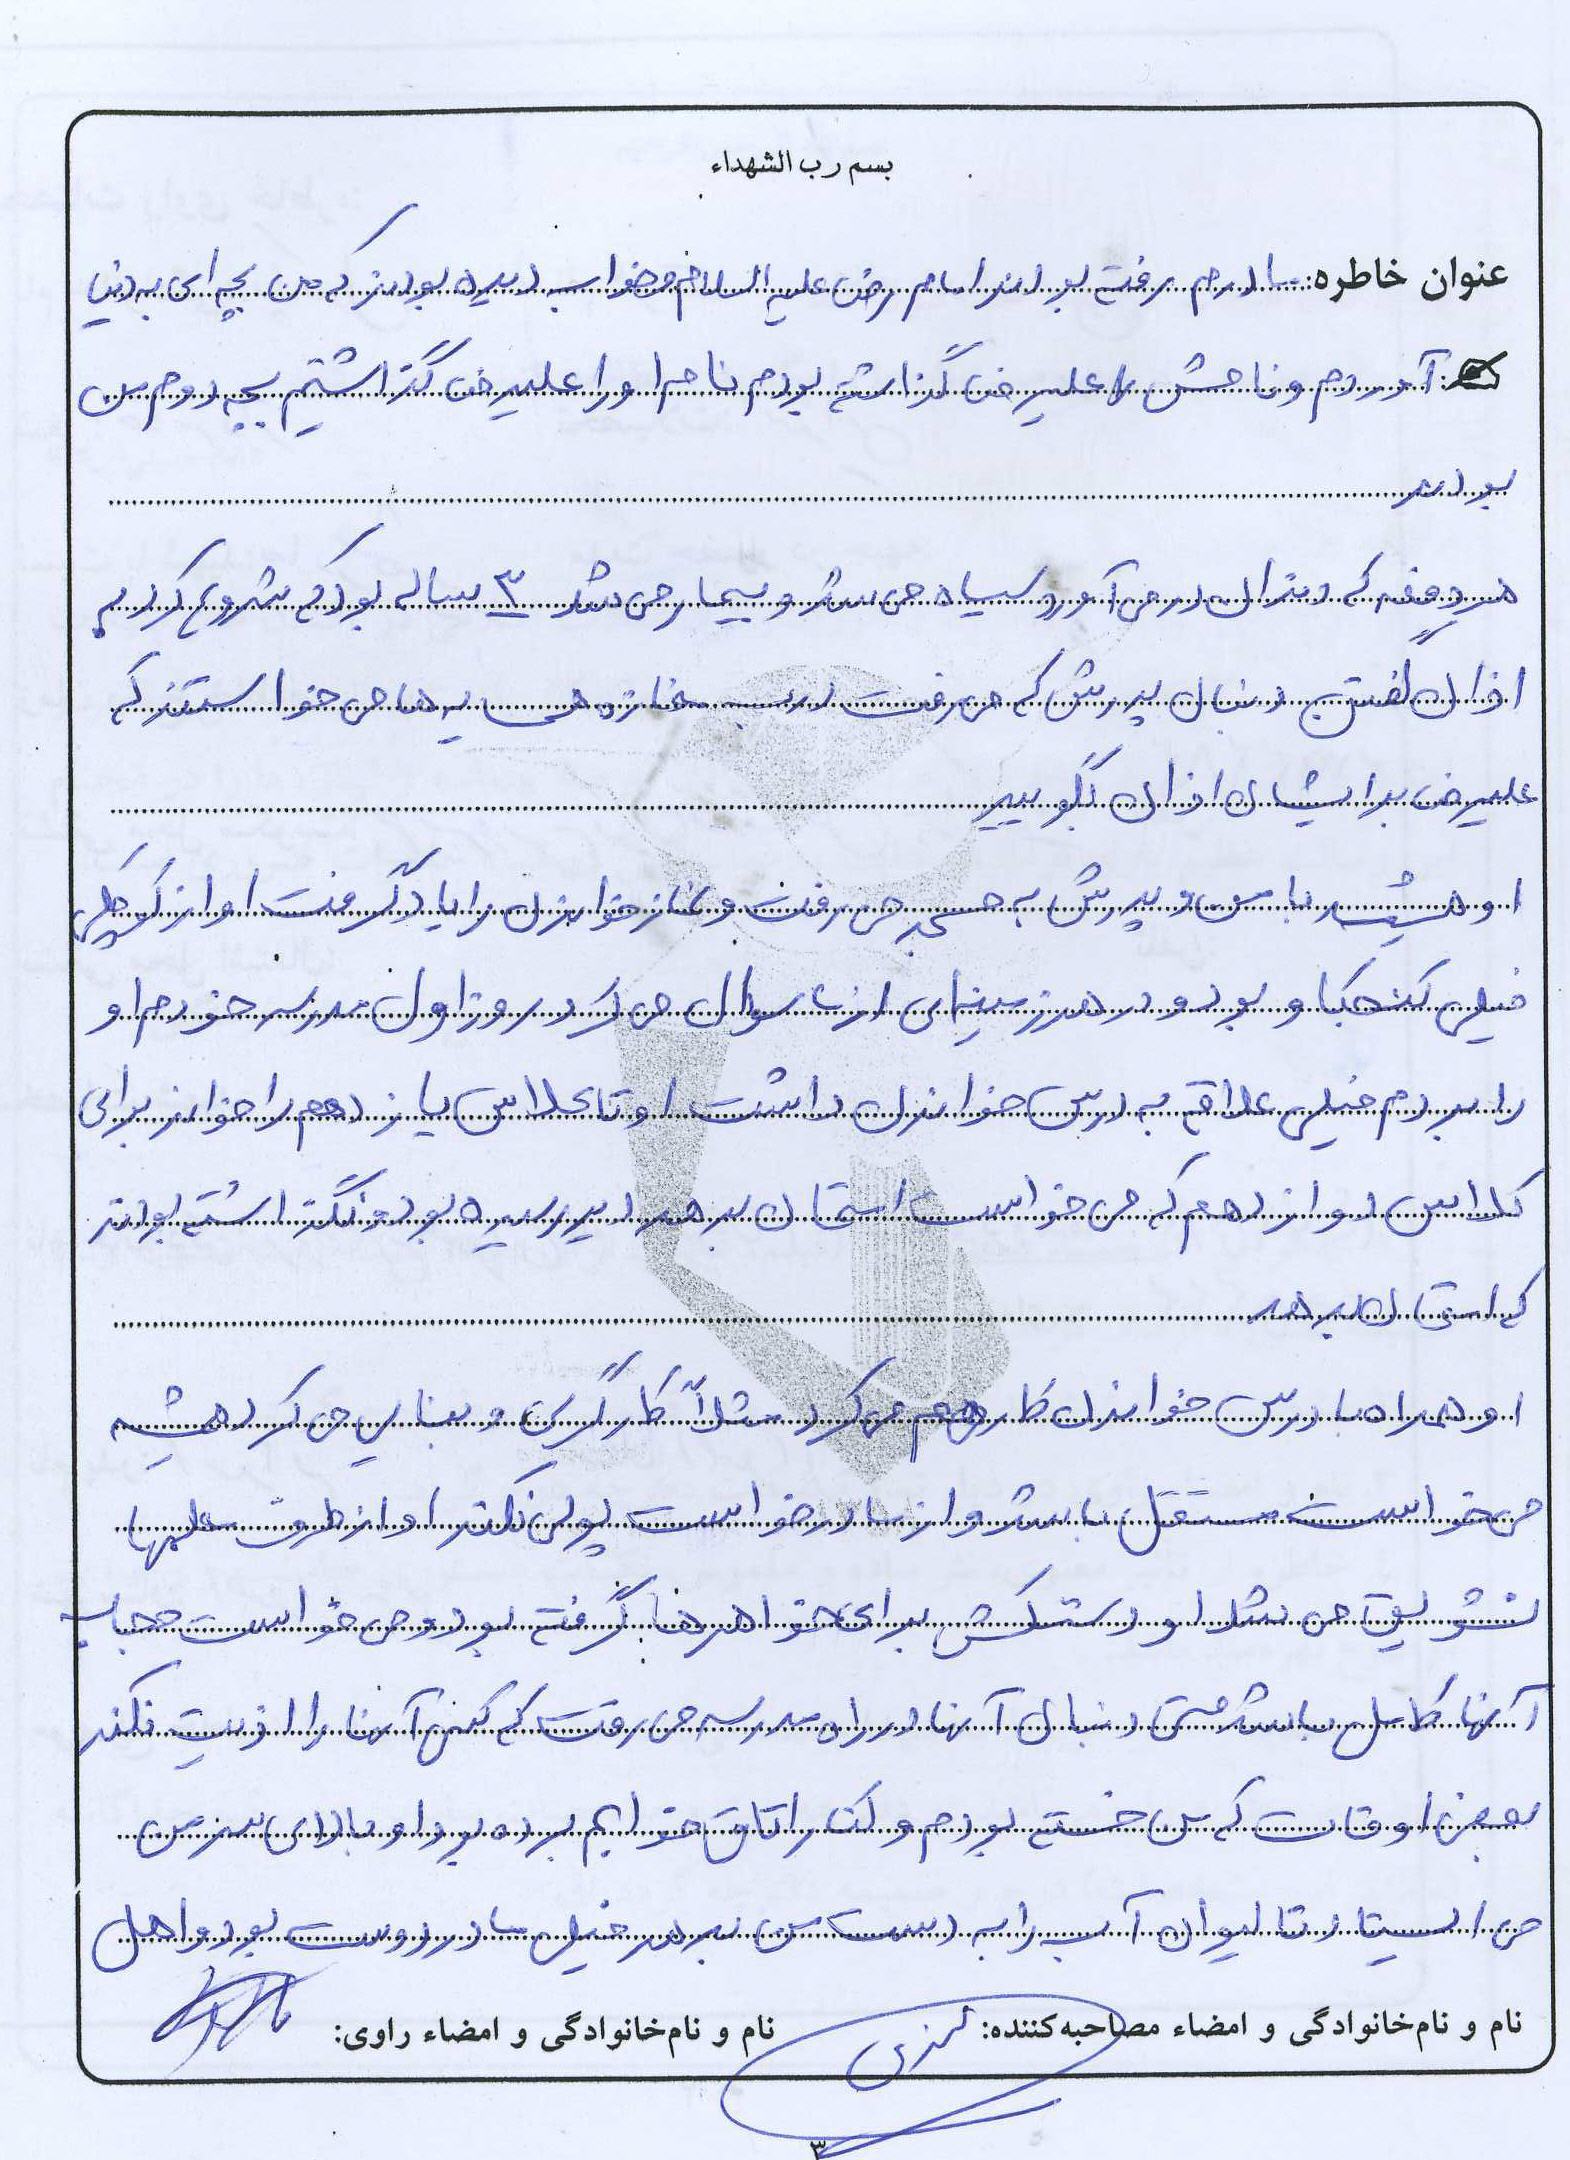 بسم رب الشهداء
عنوان خاطره: مادرم رفته بودند امام رضا علیه السلام و خواب دیده بودند که من بچه ای به دنیا
آوردم و نامش را علیرضا گذاشته بودم نام او را علیرضا گذاشتیم بچه دوم من
بودند
هر دفعه که دندان در می آورد سیاه می شد و بیمار می شد ۳ ساله بود که شروع کرد به
اذان گفتن دنبال پدرش که می رفت درب مغازه همسایه ها می خواستند که
علیرضا برایشان اذان بگویید
او همیشه با من و پدرش به مسجد می رفت و نماز خواندن را یاد گرفت او از کوچکی
خیلی کنجکاو بود و در هر زمینه ای از ما سوال می کرد روز اول مدرسه خودم او
را بردم خیلی علاقه به درس خواندن داشت او تا کلاس یازدهم را خواند برای
کلاس دوازدهم که می خواست امتحان بدهد دیر رسیده بود و نگذاشته بودند
که امتحان بدهد
او همراه با درس خواندن کار هم می کرد مثلاً کارگری و بنایی می کرد همیشه
می خواست مستقل باشد و از ما درخواست پولی نکند او از طرف معلمها
تشویق می شد او دستکش برای خواهرها گرفته بود و می خواست حجاب
آنها کامل باشد حتی دنبال آنها در راه مدرسه می رفت که کسی آنها را اذیت نکند
بعضی اوقات که من خسته بودم و کنار اتاق خوابم برده بود او بالای سر من
می ایستاد تا لیوان آب را به دست من بدهد خیلی مادر دوست بود و اهل
نام و نام‌خانوادگی و امضاء مصاحبه‌کننده:
نام و نام‌خانوادگی و امضاء راوی:
۳